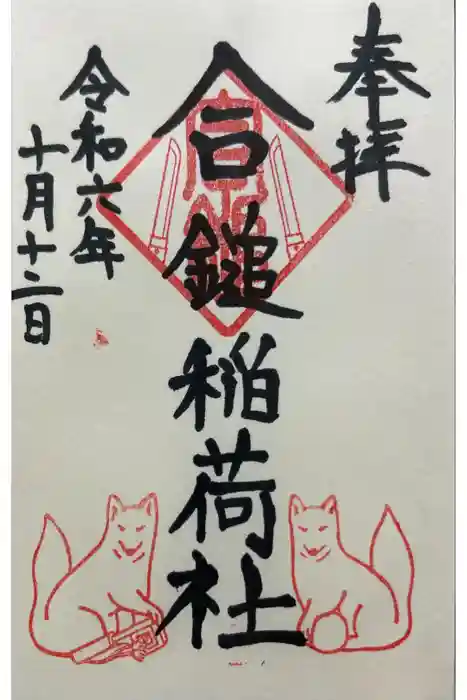 奉拝
合鎚稲荷社
令和六年
十月十二日